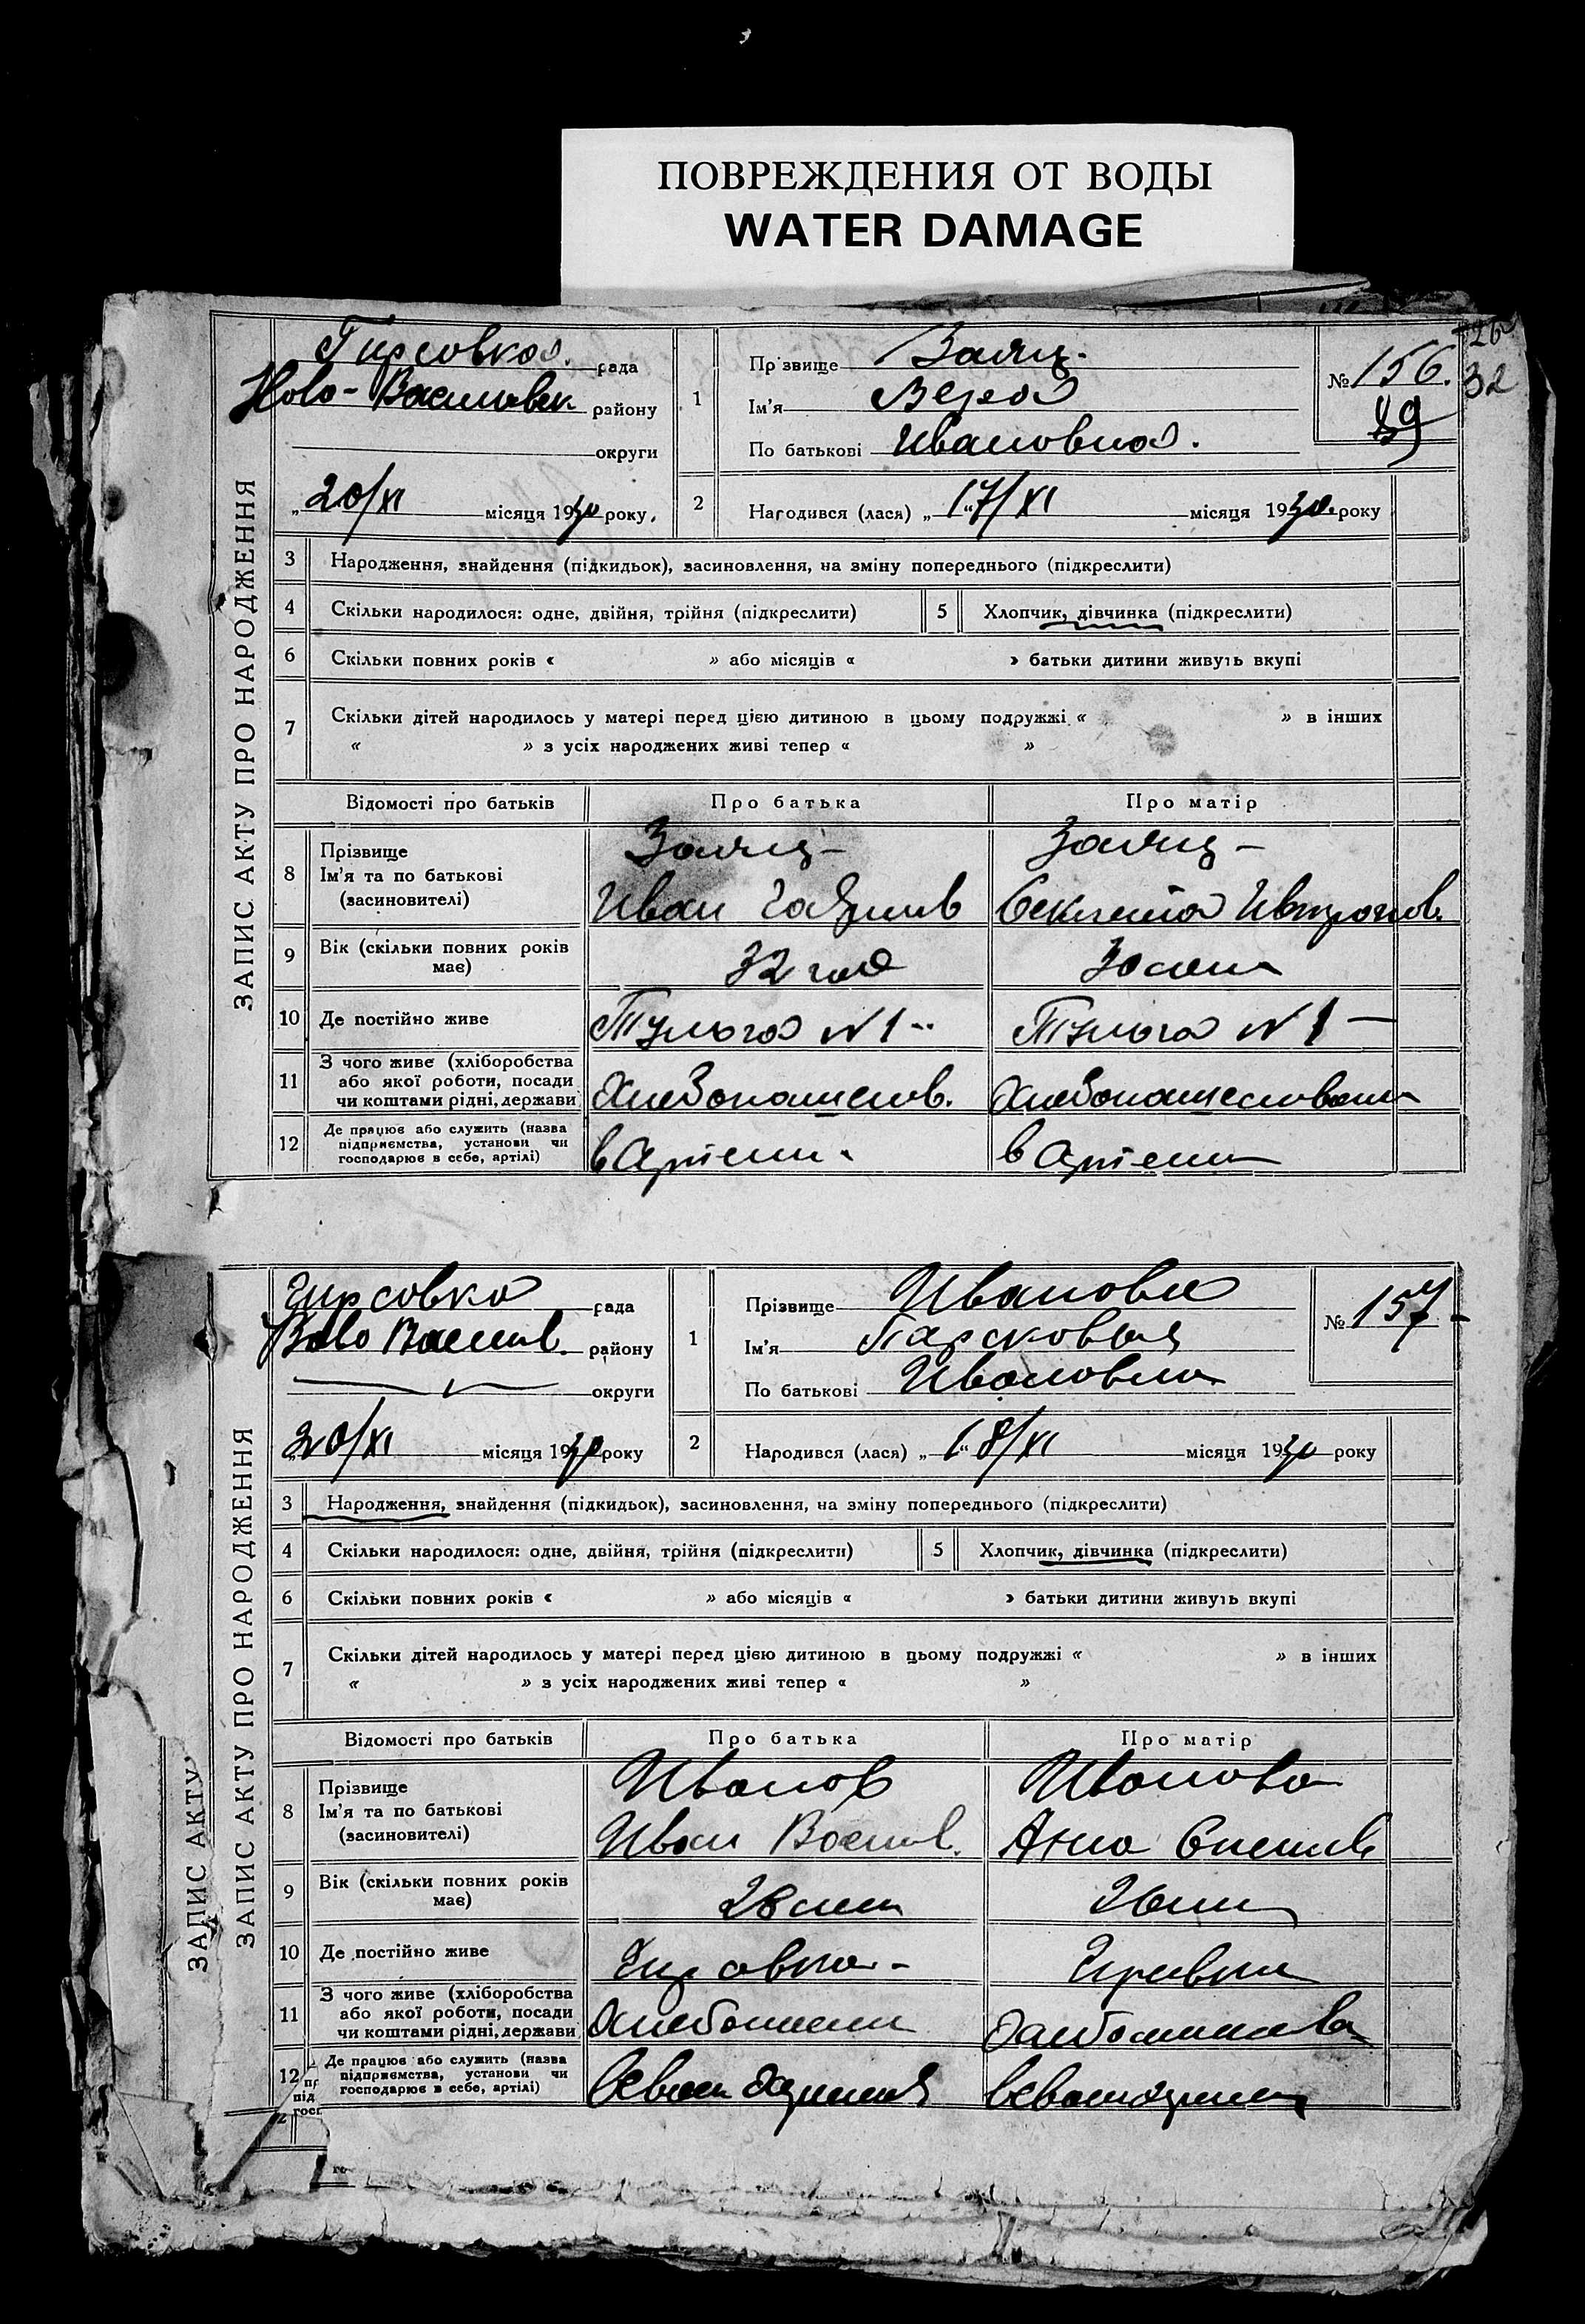 ПОВРЕЖДЕНИЯ ОТ ВОДЫ
WATER DAMAGE
26
32
ЗАПИС АКТУ ПРО НАРОДЖЕННЯ
Гирсовка рада
Ново-Васильевк району
округи
„20/XI місяця 1930 року,
1
Прізвище Заяц.
Ім'я Вера
По батькові Ивановна.
№ 156.
89
2 Народився (лася) „17/XI місяця 1930. року
3 Народження, знайдення (підкидьок), засиновлення, на зміну попереднього (підкреслити)
4 Скільки народилося: одне, двійня, трійня (підкреслити) 5 Хлопчик, дівчинка (підкреслити)
6 Скільки повних років « » або місяців « » батьки дитини живуть вкупі
7 Скільки дітей народилось у матері перед цією дитиною в цьому подружжі « » в інших
« » з усіх народжених живі тепер « »
Відомості про батьків Про батька Про матір
8 Прізвище Заяц- Заяц-
Ім'я та по батькові Иван Гаврилов
(засновителі)
9 Вік (скільки повних років має) 32 год 30 лет
10 Де постійно живе №1 №1
11 З чого живе (хліборобства
або якої роботи, посади
чи коштами рідні, держави) Хлебопашев.
12 Де працює або служить (назва
підприємства, установи чи
господарює в себе, артілі) в Артели. в Артели
ЗАПИС АКТУ ПРО НАРОДЖЕННЯ
Гирсовка рада
Ново Васильв. району
округи
„20/XI місяця 1930 року
1
Прізвище Иванова
Ім'я Парасковья
По батькові Ивановна
№ 157
2 Народився (лася) „18/XI місяця 1930 року
3 Народження, знайдення (підкидьок), засиновлення, на зміну попереднього (підкреслити)
4 Скільки народилося: одне, двійня, трійня (підкреслити) 5 Хлопчик, дівчинка (підкреслити)
6 Скільки повних років « » або місяців « » батьки дитини живуть вкупі
7 Скільки дітей народилось у матері перед цією дитиною в цьому подружжі « » в інших
« » з усіх народжених живі тепер « »
Відомості про батьків Про батька Про матір
8 Прізвище Иванов Иванова
Ім'я та по батькові Иван Васил. Анна
(засиновителі)
9 Вік (скільки повних років має) 28 лет 26 лет
10 Де постійно живе Гирсовка- Гирсовка
11 З чого живе (хліборобства
або якої роботи, посади
чи коштами рідні, держави)
12 Де працює або служить (назва
підприємства, установи чи
господарює в себе, артілі)
ЗАПИС АКТУ